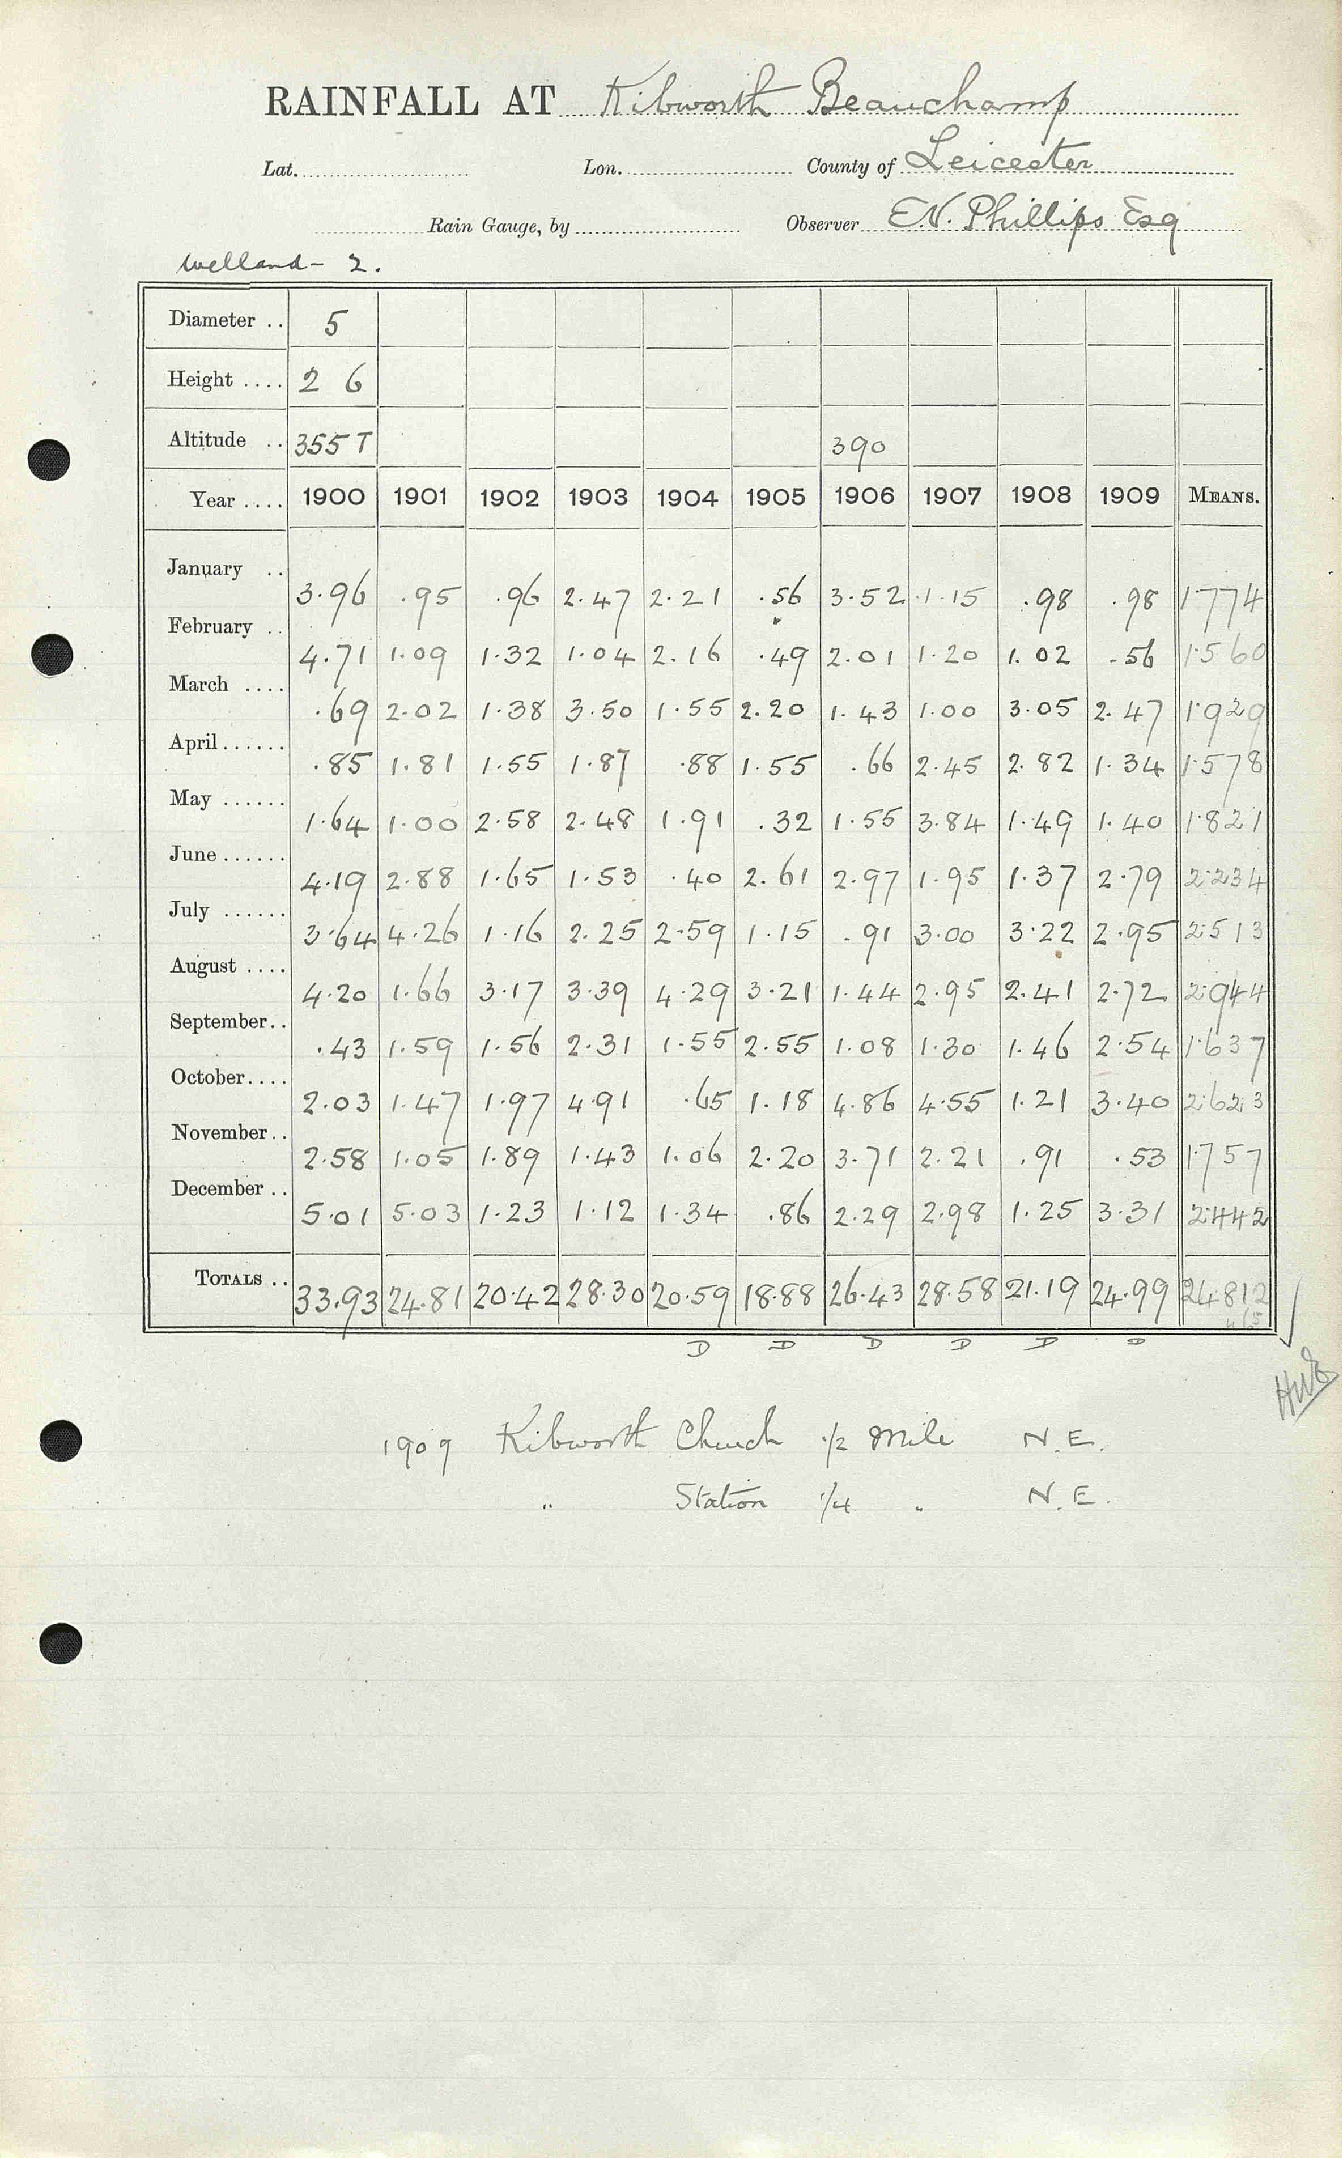 RAINFALL AT Kibworth Beauchamp
Lat. Lon. County of Leicester
Rain Gauge, by Observer E.N. Phillips Esq
Welland - 2.
Diameter .. 5
Height .... 2 6
Altitude .. 355 T 390
Year .... 1900 1901 1902 1903 1904 1905 1906 1907 1908 1909 MEANS.
January .. 3.96 .95 .96 2.47 2.21 .56 3.52 1.15 .98 .98 1.774
February .. 4.71 1.09 1.32 1.04 2.16 .49 2.01 1.20 1.02 .56 1.560
March .... .69 2.02 1.38 3.50 1.55 2.20 1.43 1.00 3.05 2.47 1.929
April ...... .85 1.81 1.55 1.87 .88 1.55 .66 2.45 2.82 1.34 1.578
May ...... 1.64 1.00 2.58 2.48 1.91 .32 1.55 3.84 1.49 1.40 1.821
June ...... 4.19 2.88 1.65 1.53 .40 2.61 2.97 1.95 1.37 2.79 2.234
July ...... 3.64 4.26 1.16 2.25 2.59 1.15 .91 3.00 3.22 2.95 2.513
August .... 4.20 1.66 3.17 3.39 4.29 3.21 1.44 2.95 2.41 2.72 2.944
September .. .43 1.59 1.56 2.31 1.55 2.55 1.08 1.30 1.46 2.54 1.637
October .... 2.03 1.47 1.97 4.91 .65 1.18 4.86 4.55 1.21 3.40 2.623
November .. 2.58 1.05 1.89 1.43 1.06 2.20 3.71 2.21 .91 .53 1.757
December .. 5.01 5.03 1.23 1.12 1.34 .86 2.29 2.98 1.25 3.31 2.442
TOTALS .. 33.93 24.81 20.42 28.30 20.59 18.88 26.43 28.58 21.19 24.99 24.812
D D D D D D
1909 Kibworth Church 1/2 Mile N.E.
" Station 1/4 " N.E.